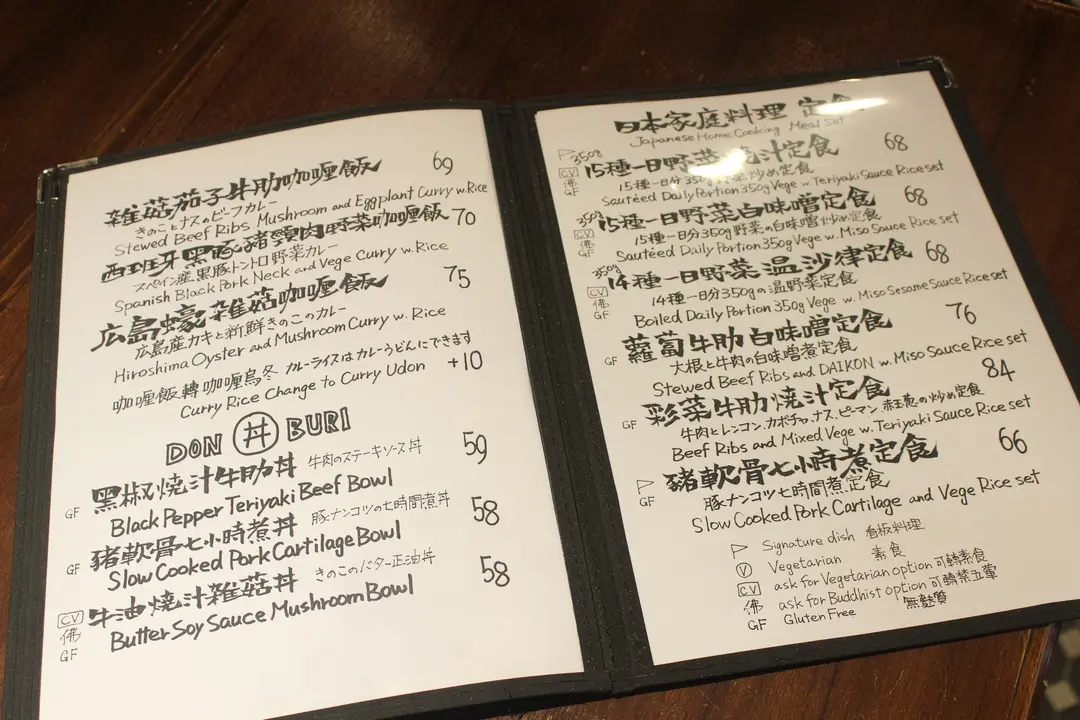 雜菇茄子牛肋咖喱飯 69
きのことナスのビーフカレー
Stewed Beef Ribs, Mushroom and Eggplant Curry w. Rice
西班牙黑豚豬頸肉野菜咖喱飯 70
スペイン産黒豚トントロ野菜カレー
Spanish Black Pork Neck and Vege Curry w. Rice
広島蠔雜菇咖喱飯 75
広島産カキと新鮮きのこのカレー
Hiroshima Oyster and Mushroom Curry w. Rice
咖喱飯轉咖喱烏冬 カレーライスはカレーうどんにできます
Curry Rice Change to Curry Udon +10
DON 丼 BURI
黑椒燒汁牛肋丼 牛肉のステーキソース丼 59
GF Black Pepper Teriyaki Beef Bowl
豬軟骨七小時煮丼 豚ナンコツの七時間煮丼 58
GF Slow Cooked Pork Cartilage Bowl
牛油燒汁雜菇丼 きのこのバター正油丼 58
CV 佛 GF Butter Soy Sauce Mushroom Bowl
日本家庭料理 定食
Japanese Home Cooking Meal Set
350g 15種一日野菜燒汁定食 68
15種一日分350g野菜炒め定食
CV 佛 GF Sautéed Daily Portion 350g Vege w. Teriyaki Sauce Rice set
350g 15種一日野菜白味噌定食 68
15種一日分350g野菜の白味噌炒め定食
CV 佛 GF Sautéed Daily Portion 350g Vege w. Miso Sauce Rice set
350g 14種一日野菜温沙律定食 68
14種一日分350gの温野菜定食
CV 佛 GF Boiled Daily Portion 350g Vege w. Miso Sesame Sauce Rice set
蘿蔔牛肋白味噌定食 76
大根と牛肉の白味噌煮定食
GF Stewed Beef Ribs and DAIKON w. Miso Sauce Rice set
彩菜牛肋燒汁定食 84
牛肉とレンコン、カボチャ、ナス、ピーマン、赤玉葱の炒め定食
GF Beef Ribs and Mixed Vege w. Teriyaki Sauce Rice set
豬軟骨七小時煮定食 66
豚ナンコツ七時間煮定食
GF Slow Cooked Pork Cartilage and Vege Rice set
Signature dish 看板料理
V Vegetarian 素食
CV ask for Vegetarian option 可轉素食
佛 ask for Buddhist option 可轉禁五葷
GF Gluten Free 無麩質